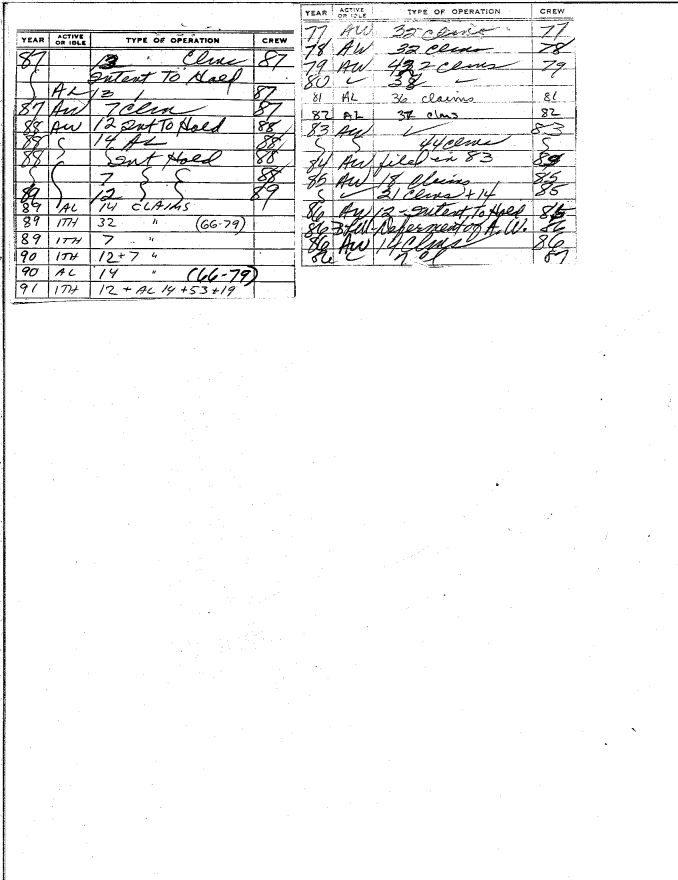 YEAR ACTIVE OR IDLE TYPE OF OPERATION CREW
87 13 " Clms 87
Intent To Hold
AL 13 87
87 AW 7 Clm 87
88 AW 12 Int To Hold 88
88 14 AL 88
88 Int Hold 88
7 88
89 12 89
89 AL 14 CLAIMS
89 ITH 32 " (66-79)
89 ITH 7 "
90 ITH 12+7 "
90 AL 14 " (66-79)
91 ITH 12 + AL 14 +53 +19
YEAR ACTIVE OR IDLE TYPE OF OPERATION CREW
77 AW 32 claims 77
78 AW 32 claims 78
79 AW 2 clms 79
80 38
81 AL 36 claims 81
82 AL 37 clms 82
83 AW ✓ 83
44 clms
84 AW filed in 83
85 AW 18 Claims 85
21 Clms +14 85
86 AW 12 - Intent To Hold
86 Deferment of A.W. 86
86 AW 14 Clms 86
86 7 87